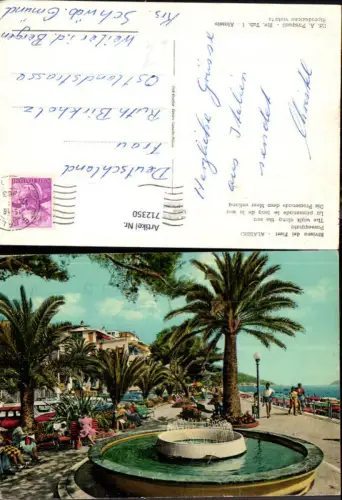 Riviera dei Fiori - ALASSIO
Passeggiata
The walk along the sea
La promenade le long de la mer
Die Promenade dem Meer entlang
Herzliche Grüsse
aus Italien
sendet
Deutschland
Frau
Ruth Birkholz
Ostlandstrasse
Weiler i.d. Bergen
Krs. Schwäb. Gmünd
Artikel Nr.
712350
Riproduzione vietata